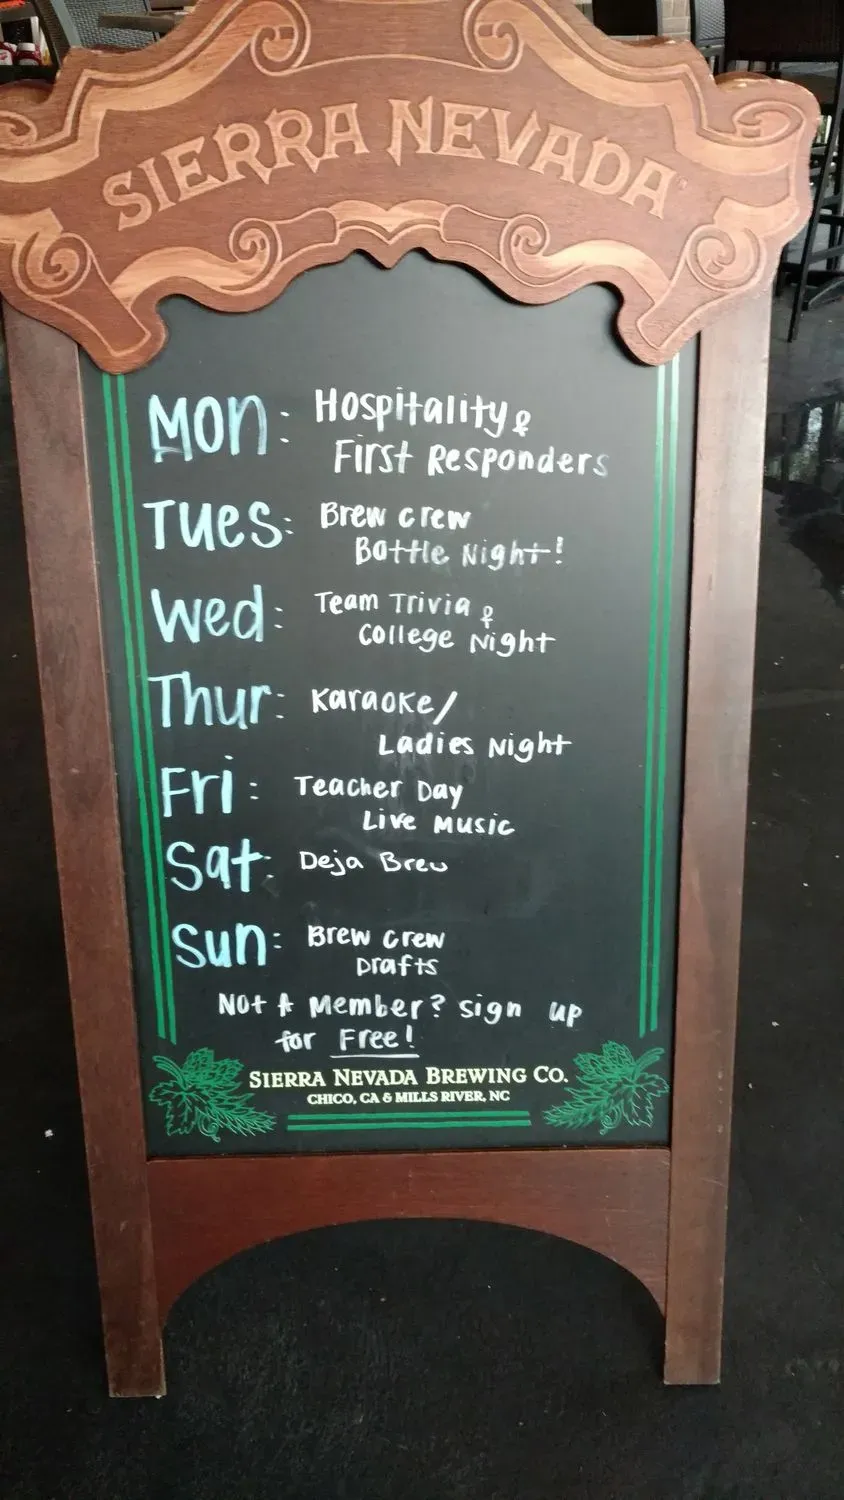 SIERRA NEVADA
Mon: Hospitality &
First Responders
Tues: Brew Crew
Battle Night!
Wed: Team Trivia &
College Night
Thur: Karaoke/
Ladies Night
Fri: Teacher Day
Live Music
Sat: Deja Brew
Sun: Brew Crew
Drafts
Not A Member? Sign up
for Free!
SIERRA NEVADA BREWING CO.
CHICO, CA & MILLS RIVER, NC